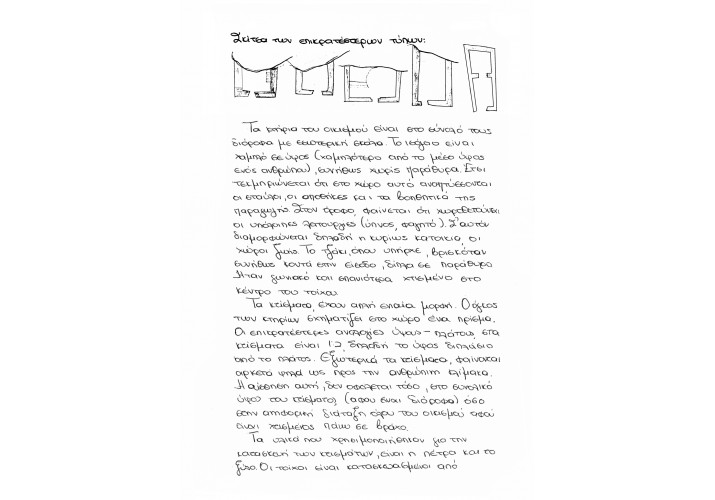 Σκίτσα των επικρατέστερων τύπων:
Τα κτήρια του οικισμού είναι στο σύνολό τους
διόροφα με εσωτερική σκάλα. Το ισόγειο είναι
χαμηλό σε ύψος (χαμηλότερο από το μέσο ύψος
ενός ανθρώπου), συνήθως χωρίς παράθυρα. Έτσι
τεκμηριώνεται ότι στο χώρο αυτό αναπτύσσονται
οι σταύλοι, οι αποθήκες και τα βοηθητικά της
παραγωγής. Στον όροφο, φαίνεται ότι χωροθετούνται
οι υπόλοιπες λειτουργίες (ύπνος, φαγητό). Σ'αυτόν
διαμορφώνεται δηλαδή η κυρίως κατοικία, οι
χώροι ζωής. Το τζάκι, όπου υπήρχε, βρισκόταν
συνήθως κοντά στην είσοδο, δίπλα σε παράθυρο
Ήταν γωνιακό και σπανιότερα χτισμένο στο
κέντρο του τοίχου
Τα κτίσματα, έχουν απλή ενιαία μορφή. Ο όγκος
των κτηρίων σχηματίζει στο χώρο ένα πρίσμα.
Οι επικρατέστερες αναλογίες ύψους - πλάτους, στα
κτίσματα είναι 1:2, δηλαδή το ύψος διπλάσιο
από το πλάτος. Εξωτερικά τα κτίσματα, φαίνονται
αρκετά ψηλά ως προς την ανθρώπινη κλίμακα.
Η αίσθηση αυτή, δεν οφείλεται τόσο, στο συνολικό
ύψος του κτίσματος (αφού είναι διόροφα) όσο
στην αμφιθεατρική διάταξη όλου του οικισμού αφού
είναι χτισμένος πάνω σε βράχο.
Τα υλικά που χρησιμοποιήθηκαν για την
κατασκευή των κτισμάτων, είναι η πέτρα και το
ξύλο. Οι τοίχοι είναι κατασκευασμένοι από